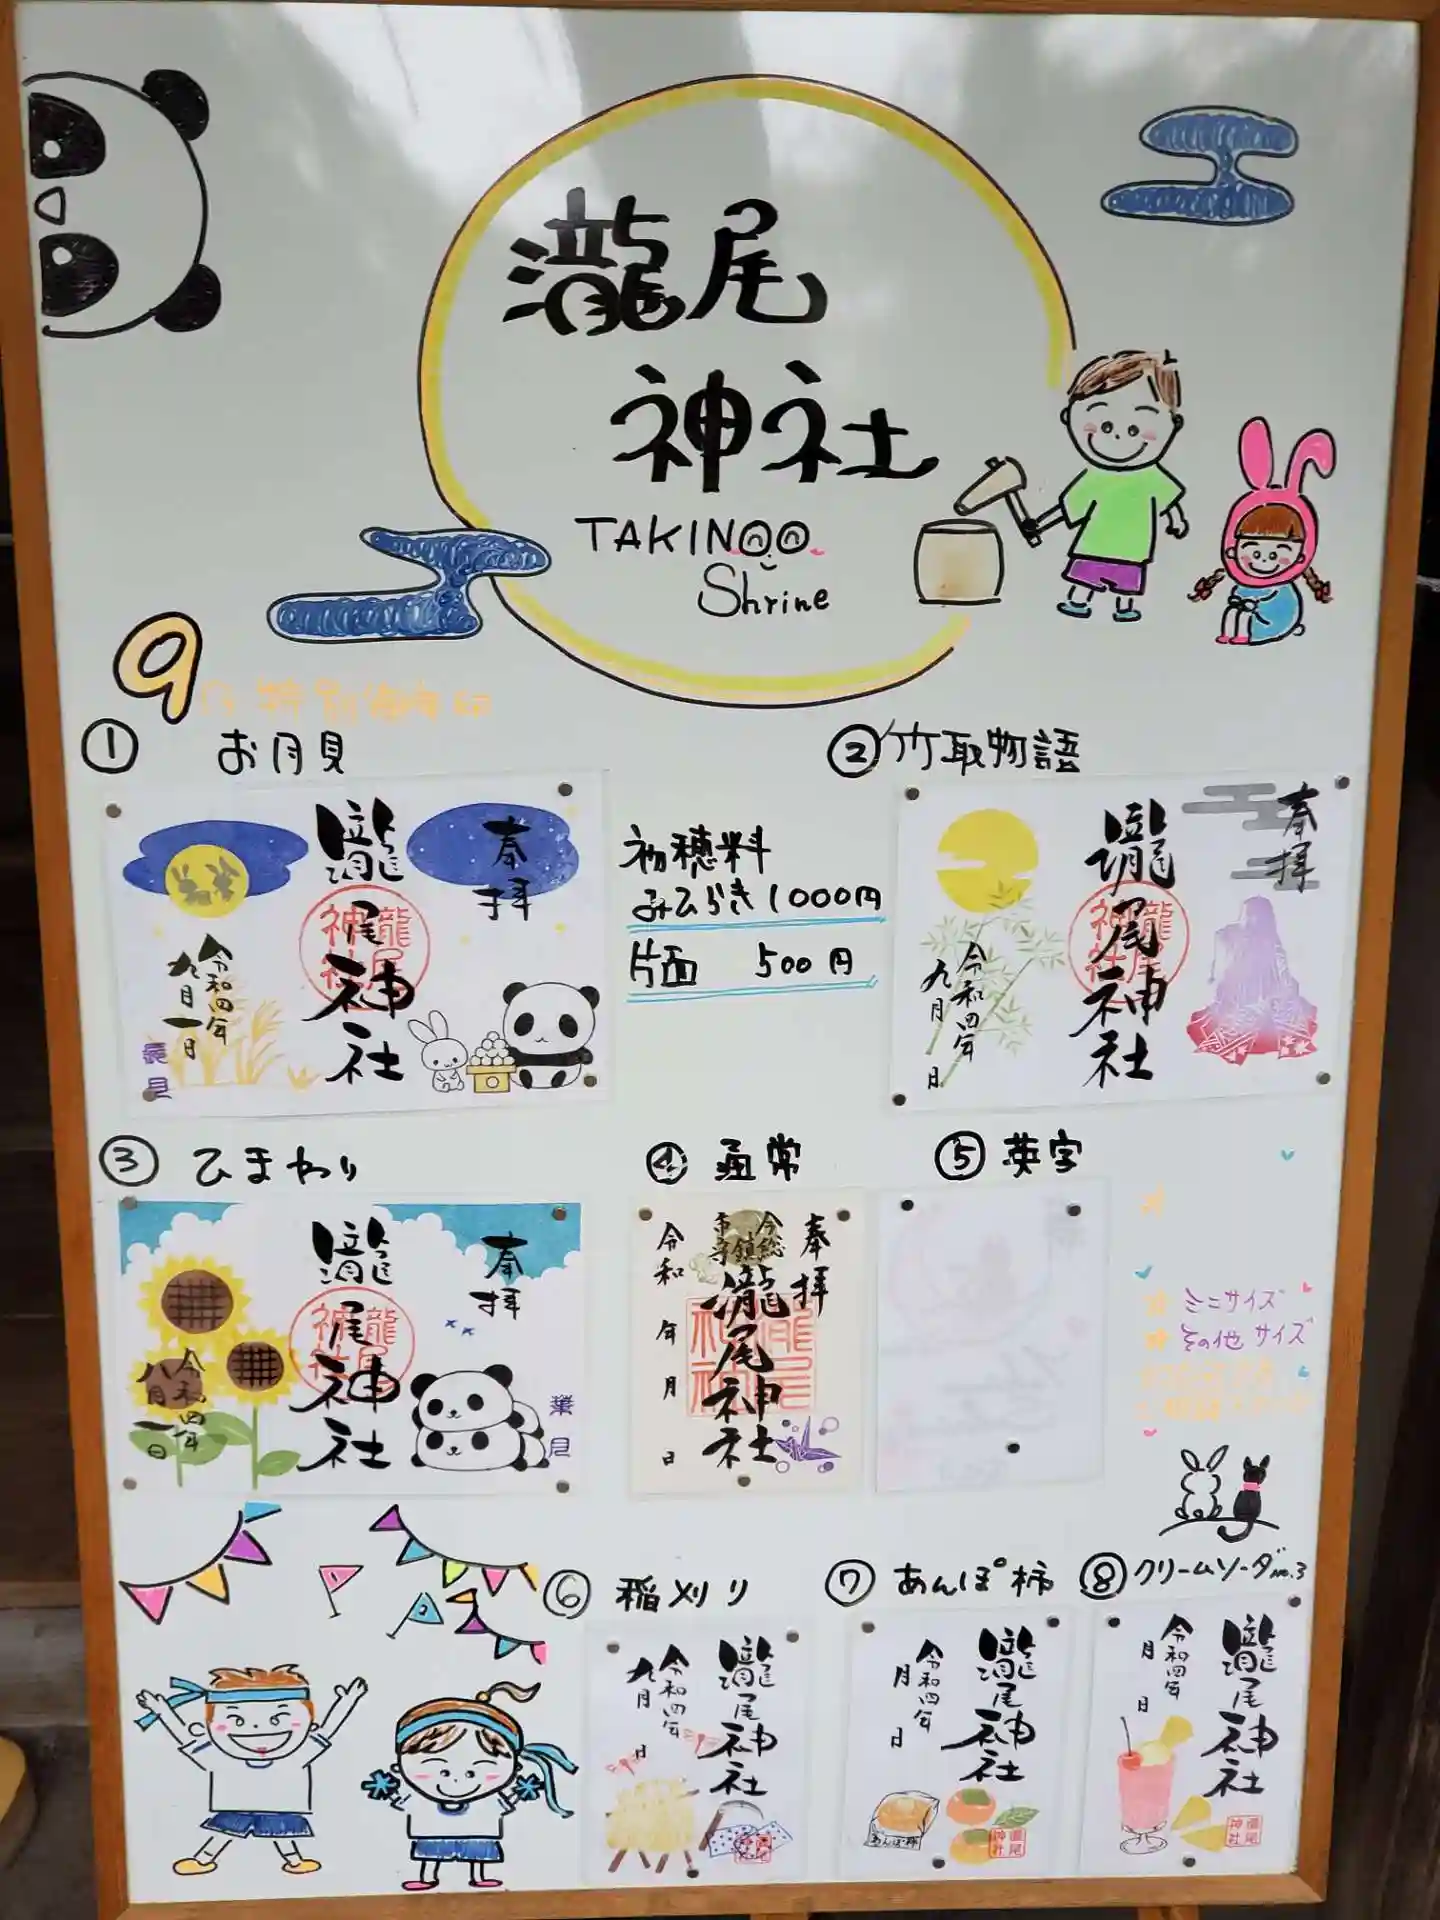 瀧尾
神社
TAKINOO
Shrine
9月 特別御朱印
① お月見
奉拝
瀧尾神社
令和四年
九月一日
月見
初穂料
みひらき1000円
片面 500円
② 竹取物語
奉拝
瀧尾神社
令和四年
九月 日
③ ひまわり
奉拝
瀧尾神社
令和四年
八月一日
葉月
④ 通常
奉拝
今市総鎮守
瀧尾神社
令和 年 月 日
⑤ 英字
ミニサイズ
その他サイズ
⑥ 稲刈り
瀧尾神社
令和四年
九月 日
⑦ あんぽ柿
瀧尾神社
令和四年
月 日
あんぽ柿
⑧ クリームソーダno.3
瀧尾神社
令和四年
月 日